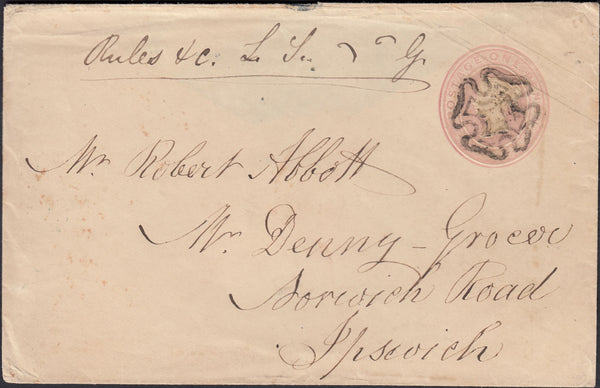 Rules &c. L. S. G.
POSTAGE ONE
Mr Robert Abbott
Mr Denny - Grocer
Norwich Road
Ipswich